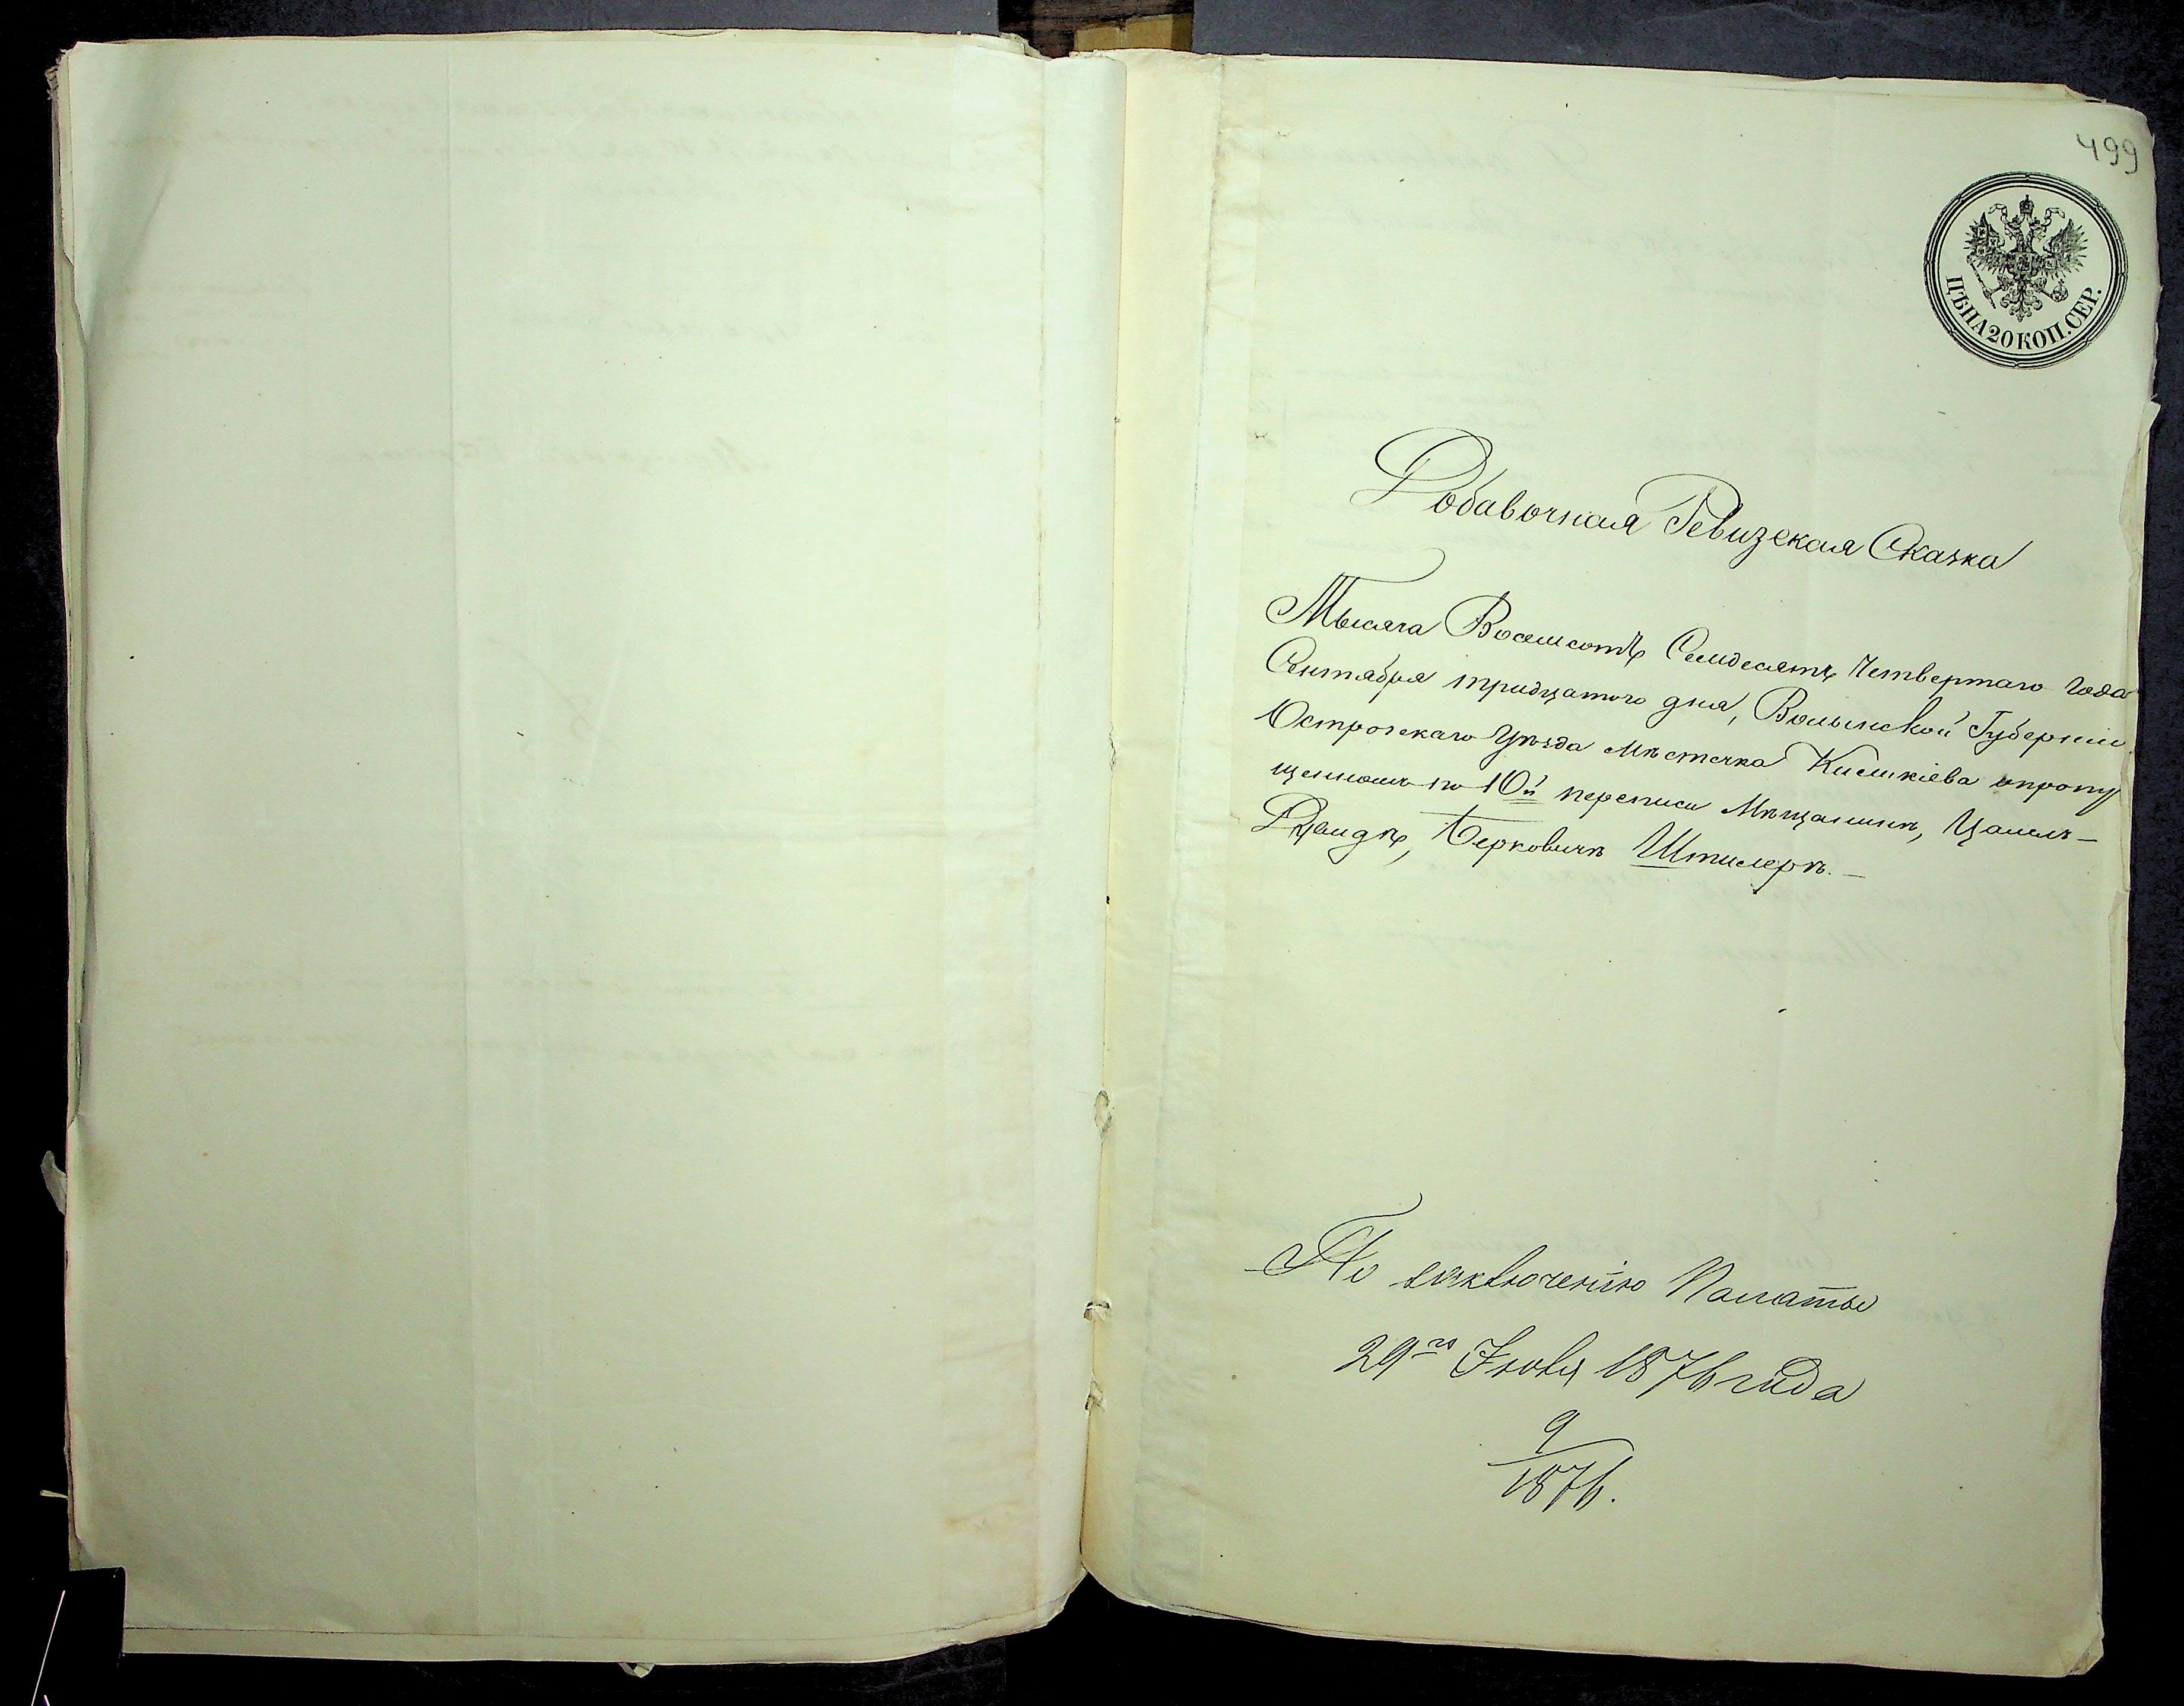 499
ЦѢНА 20 КОП. СЕР.
Добавочная Ревизская Сказка
Тысяча Восемсотъ Семдесятъ Четвертаго года
Сентября тридцатого дня, Волынской Губерніи
Острожскаго Уѣзда мѣстечка Кисилкіева опропу
щенномъ по 10й переписи Мѣщанинѣ,
Берковичѣ Штилерѣ. —
По заключенію Палаты
29го Іюля 1876 года
9
1876.